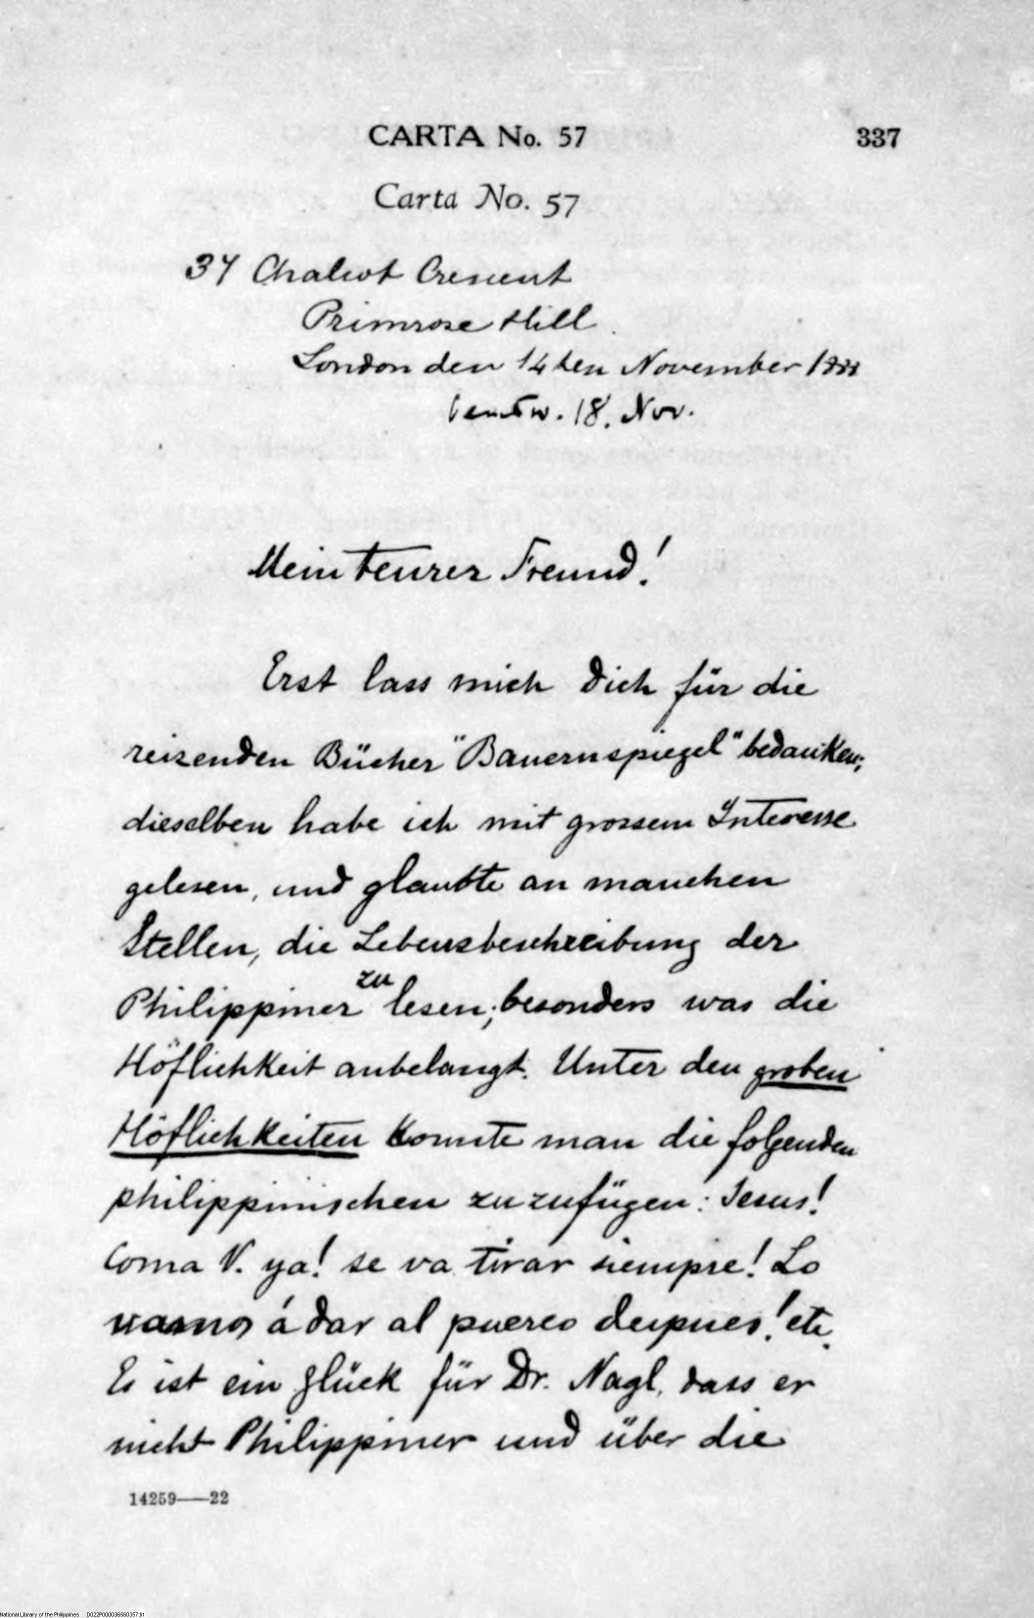 CARTA No. 57 337
Carta No. 57
37 Chalcot Crescent
Primrose Hill
London den 14ten November 1888
beantw. 18. Nov.
Mein teurer Freund!
Erst lass mich Dich für die
reizenden Bücher "Bauernspiegel" bedanken;
dieselben habe ich mit grossem Interesse
gelesen, und glaubte an manchen
Stellen, die Lebensbeschreibung der
Philippiner zu lesen; besonders was die
Höflichkeit anbelangt. Unter den groben
Höflichkeiten konnte man die folgenden
philippinischen zu zufügen: Jesus!
Coma V. ya! se va tirar siempre! Lo
vamos á dar al puerco despues! etc.
Es ist ein Glück für Dr. Nagl, dass er
nicht Philippiner und über die
14259—22
National Library of the Philippines